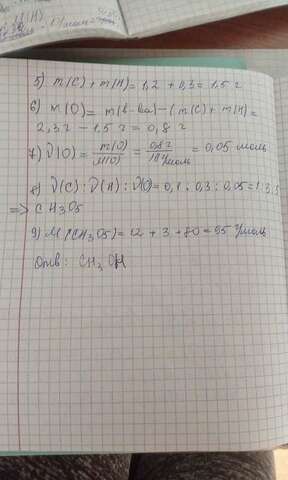 5) m(C) + m(H) = 1,2 + 0,3 = 1,5 г
6) m(O) = m(в-ва) - (m(C) + m(H) =
2,3 г - 1,5 г = 0,8 г
7) ν(O) = m(O)/M(O) = 0,8 г/16 г/моль = 0,05 моль
8) ν(C) : ν(H) : ν(O) = 0,1 : 0,3 : 0,05 = 1:3:5
=> CH3O5
9) M(CH3O5) = 12 + 3 + 80 = 95 г/моль
Отв: CH3OH